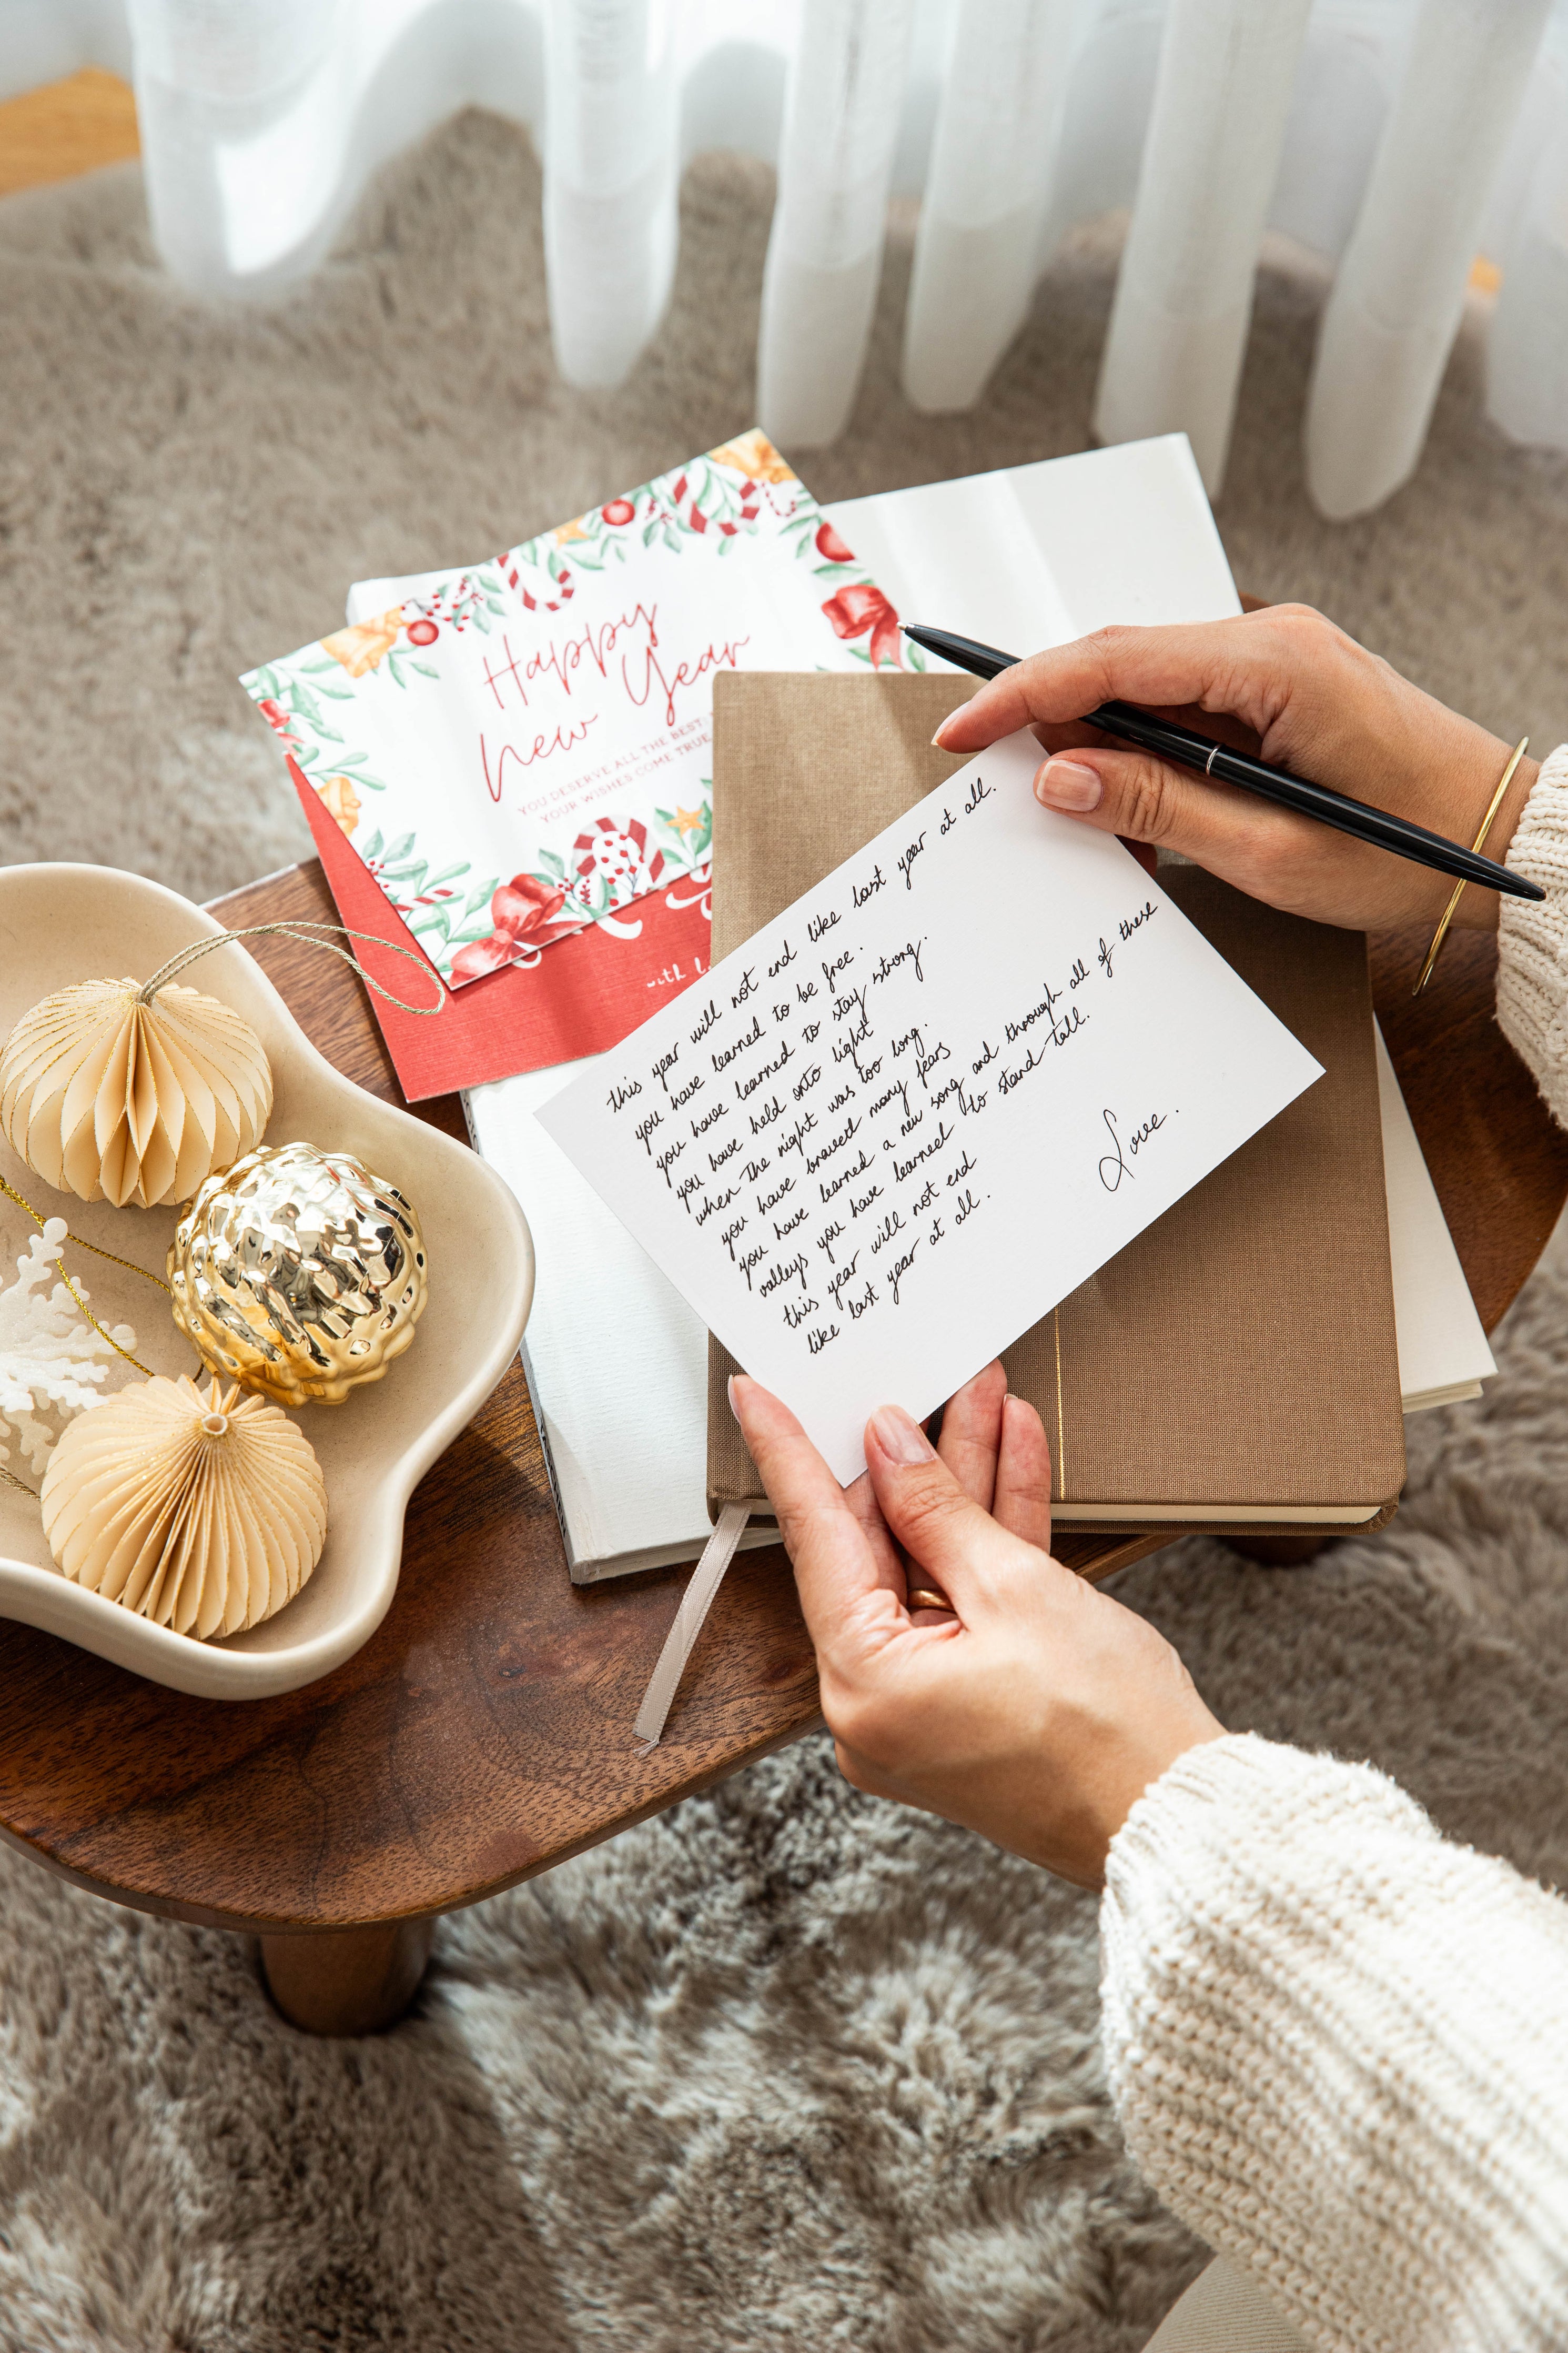 Happy
New Year
YOU DESERVE ALL THE BEST:
YOUR WISHES COME TRUE
with
this year will not end like last year at all.
you have learned to be free.
you have learned to stay strong.
you have held onto light
when the night was too long.
you have braved many fears
you have learned a new song and through all of these
valleys you have learned to stand tall.
this year will not end
like last year at all.
Love.